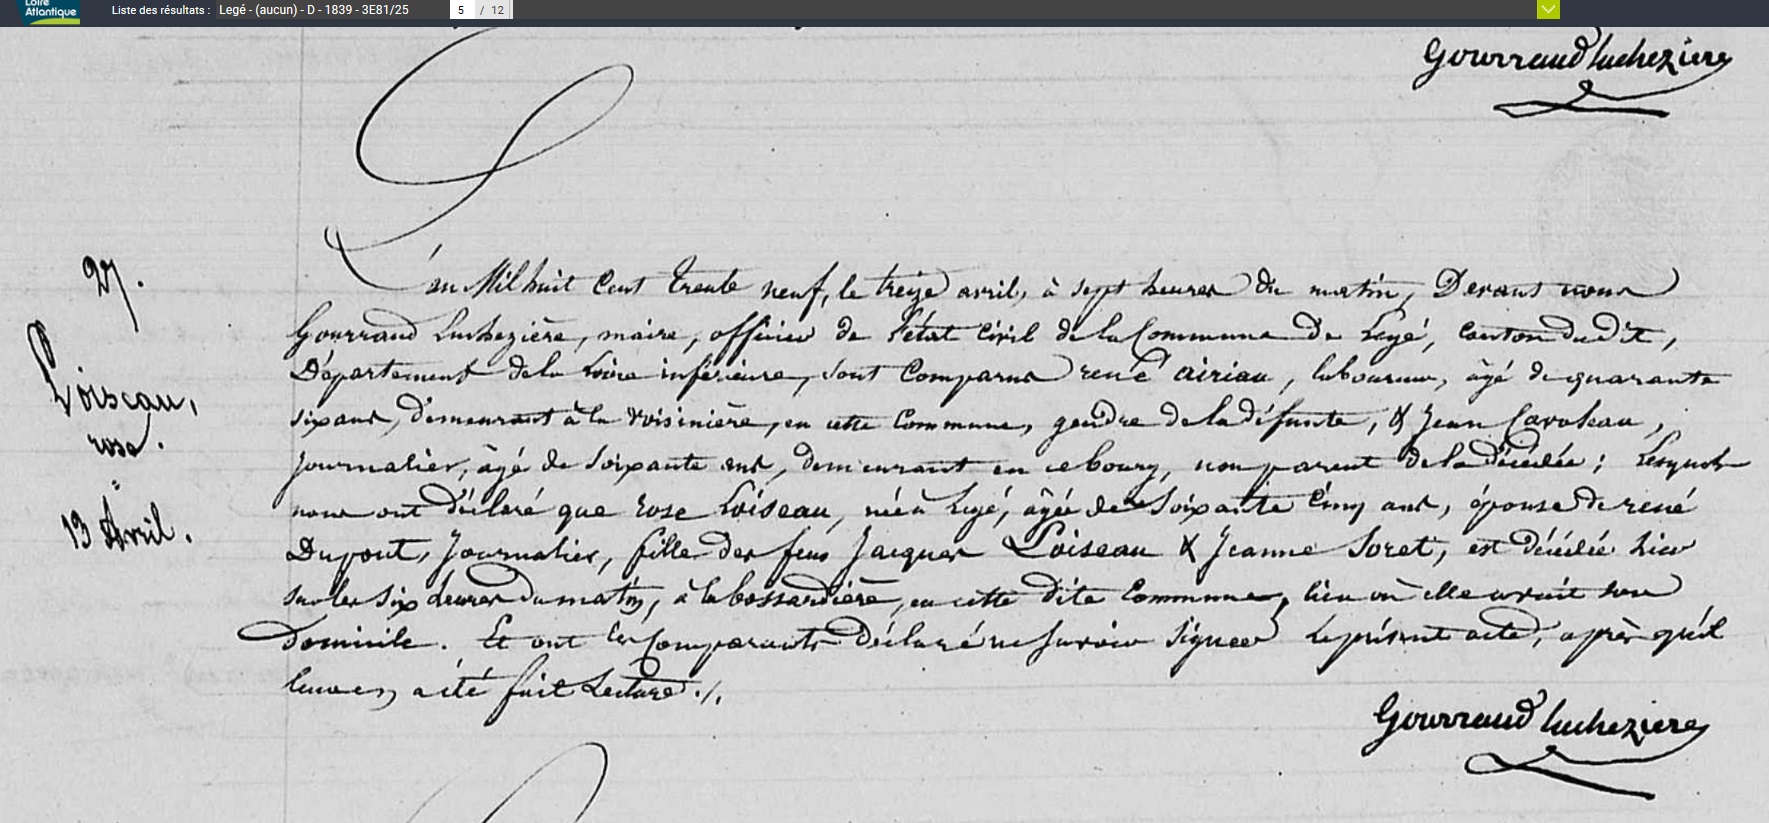 Loire
Atlantique
Liste des résultats : Legé - (aucun) - D - 1839 - 3E81/25 5 / 12
Gourraud luchezière
27.
Loiseau,
rose.
13 Avril.
L'an Mil huit Cent Trente neuf, le treize avril, à sept heures du matin, Devant nous
Gourraud Luchezière, maire, officier de l'état Civil de la Commune De Legé, canton dudit,
Département de la Loire inférieure, sont Comparus rené airiau, laboureur, âgé de quarante
six ans, demeurant à la voisinière, en cette Commune, gendre de la défunte, & Jean Cavoleau,
journalier, âgé de soixante ans, demeurant en ce bourg, non parent de la décédée ; Lesquels
nous ont déclaré que rose Loiseau, née à Legé, âgée de soixante Cinq ans, épouse de rené
Dupont, Journalier, fille des feus Jacques Loiseau & Jeanne Soret, est décédée hier
sur les six heures du matin, à la bossardière, en cette dite Commune, lieu où elle avait son
Domicile. Et ont les Comparants déclaré ne savoir signer le présent acte, après qu'il
leur en a été fait Lecture ./.
Gourraud luchezière